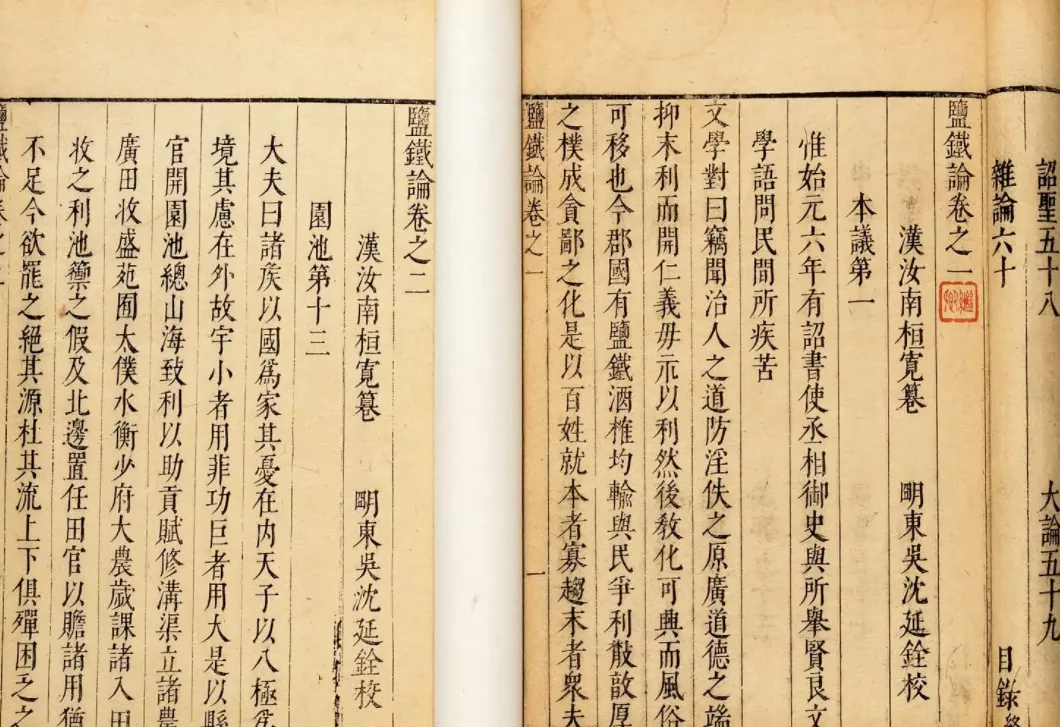 詔聖五十八 大論五十九
雜論六十 目錄終
鹽鐵論卷之一
漢汝南桓寬篹 明東吳沈延銓校
本議第一
惟始元六年有詔書使丞相御史與所舉賢良文
學語問民間所疾苦
文學對曰竊聞治人之道防淫佚之原廣道德之端
抑末利而開仁義毋示以利然後敎化可興而風俗
可移也今郡國有鹽鐵酒榷均輸與民爭利散敦厚
之樸成貪鄙之化是以百姓就本者寡趨末者眾夫
鹽鐵論卷之一 一
鹽鐵論卷之二
漢汝南桓寬篹 明東吳沈延銓校
園池第十三
大夫曰諸矦以國爲家其憂在内天子以八極爲
境其慮在外故宇小者用菲功巨者用大是以縣
官開園池總山海致利以助貢賦修溝渠立諸農
廣田收盛苑囿太僕水衡少府大農歲課諸入田
收之利池籞之假及北邊置任田官以贍諸用猶
不足今欲罷之絕其源杜其流上下俱殫困乏之
鹽鐵論卷之二